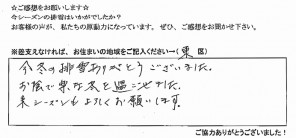 ☆ご感想をお願いします☆
今シーズンの排雪はいかがでしたか？
お客様の声が、私たちの原動力になっています。ぜひ、ご感想をお聞かせ下さい。
※差支えなければ、お住まいの地域をご記入ください→（東　区）
今冬の排雪ありがとうございました。
お陰で楽な冬を過ごせました。
来シーズンもよろしくお願いします。
ご協力ありがとうございました！